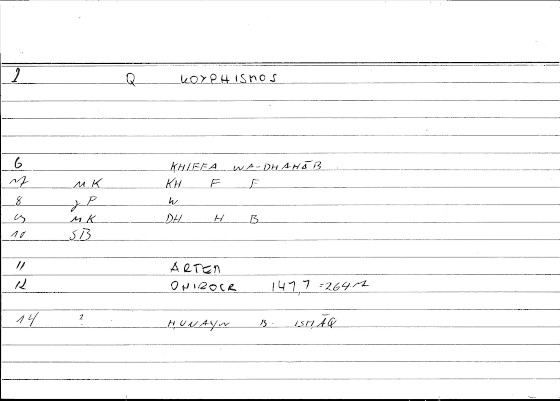 1 Q KOYPHISMOS
6 KHIFFA WA-DHAHĀB
7 MK KH F F
8 gP W
9 MK DH H B
10 SB
11 ARTEM
12 ONIROCR 147,7 = 264
14 ? HUNAYN B. ISHĀQ